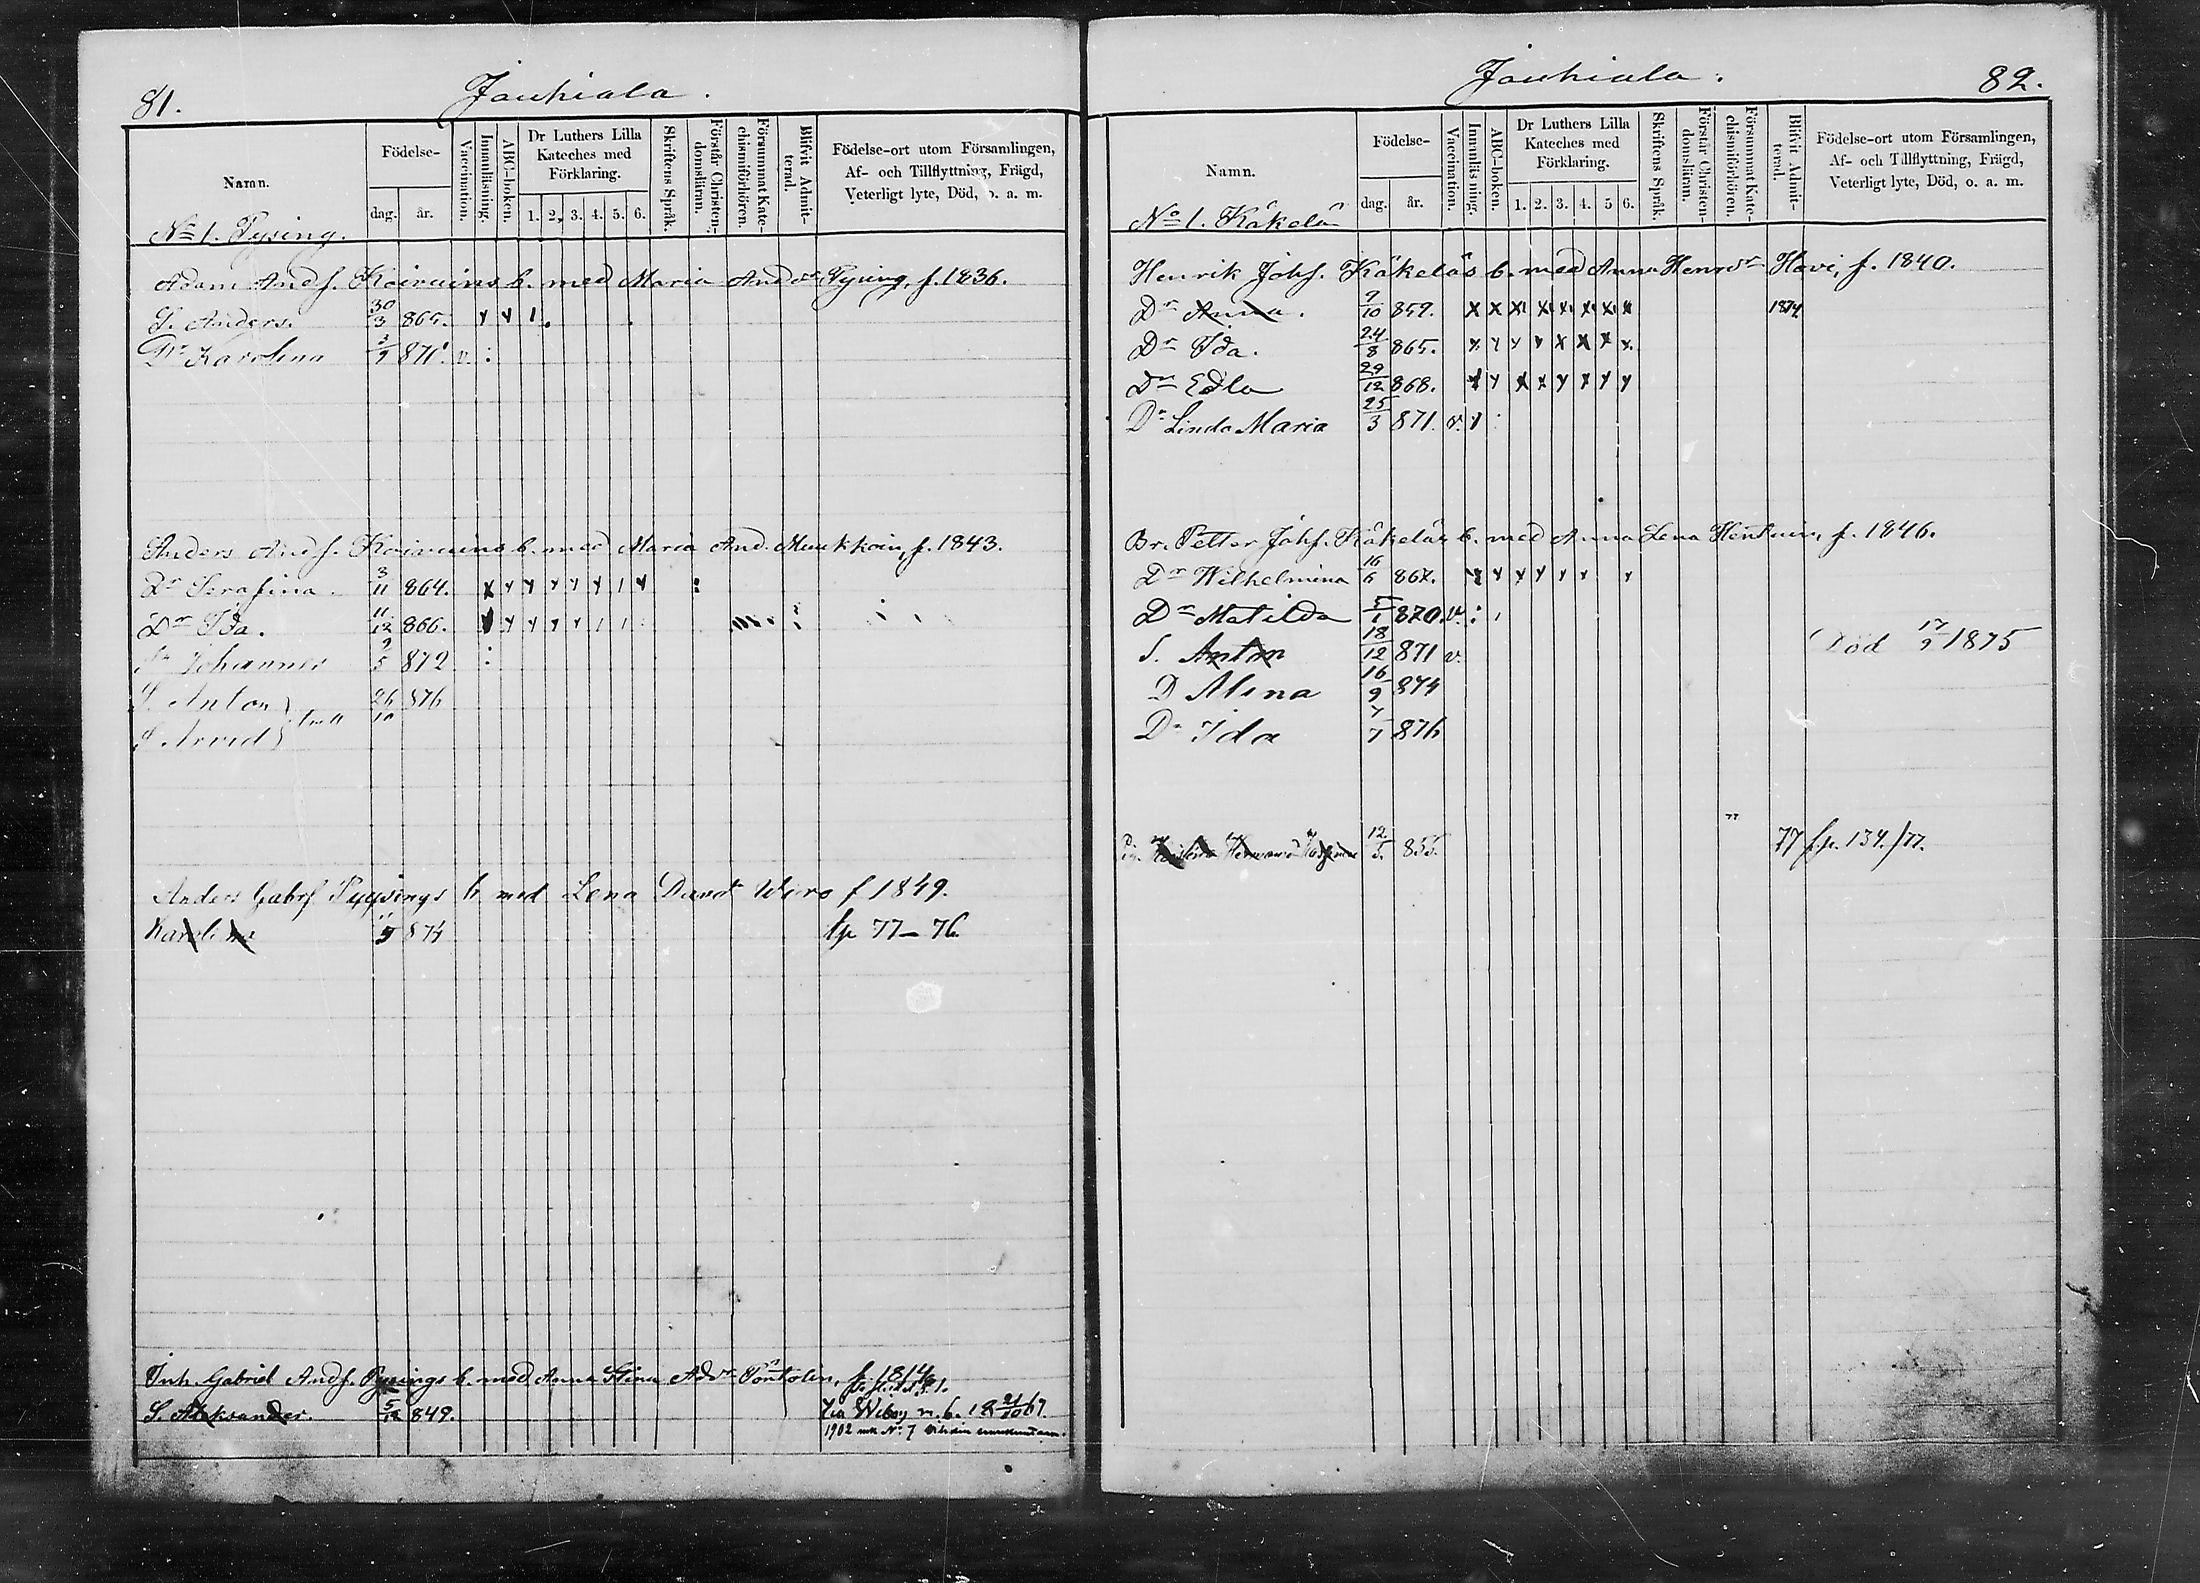 81.
Jouhiala.
Namn.
Födelse-
dag.
år.
Vaccination.
Innanläsning.
ABC-boken.
Dr Luthers Lilla
Kateches med
Förklaring.
1. 2. 3. 4. 5. 6.
Skriftens Språk.
Förstår Christen-
domsläran.
Försummat Kate-
chismiförhören.
Blifvit Admit-
terad.
Födelse-ort utom Församlingen,
Af- och Tillflyttning, Frägd,
Veterligt lyte, Död, o. a. m.
No 1. Pysing.
Adam Andf. Koivuins b. med Maria Anddr Pysing, f. 1836.
S. Anders. 30/3 865.
Dr Karolina 871. v.
Anders Andf. Koivuins b. med Maria And. Munkkoin, f. 1843.
Dr Serafina. 3/11 864.
Dr Ida. 11/12 866.
Johannes 9/5 872
S. Anton 26/10 876
S Arvid
Anders Gabrf Pyysings b med Lena Davdr Wiro f 1849.
Karolina 874 tp 77–76.
Inh. Gabriel Andf. Pysings b. med Anna Stina Addr Pöntolin, f. 1814
S. Aleksander. 5/12 849.
1902
82.
Jouhiala.
Namn.
Födelse-
dag.
år.
Vaccination.
Innanläsning.
ABC-boken.
Dr Luthers Lilla
Kateches med
Förklaring.
1. 2. 3. 4. 5 6.
Skriftens Språk.
Förstår Christen-
domsläran.
Försummat Kate-
chismiförhören.
Blifvit Admit-
terad.
Födelse-ort utom Församlingen,
Af- och Tillflyttning, Frägd,
Veterligt lyte, Död, o. a. m.
No 1. Käkelä
Henrik Johf. Käkeläs b. med Anna Henrdr Hovi, f. 1840.
Dr Anna. 9/10 859. 1874
Dr Ida. 24/8 865.
Dr Edla 29/12 868.
Dr Linda Maria 25/3 871. v.
Br. Petter Johf. Käkeläs b. med Anna Lena Henkuin, f. 1846.
Dr Wilhelmina 16/6 867.
Dr Matilda 5/1 870. v.
S. Anton 18/12 871 v. Död 17/9 1875
D Alina 16/9 874
Dr Ida 7/7 876
12/5. 855. 77 fp. 134./77.